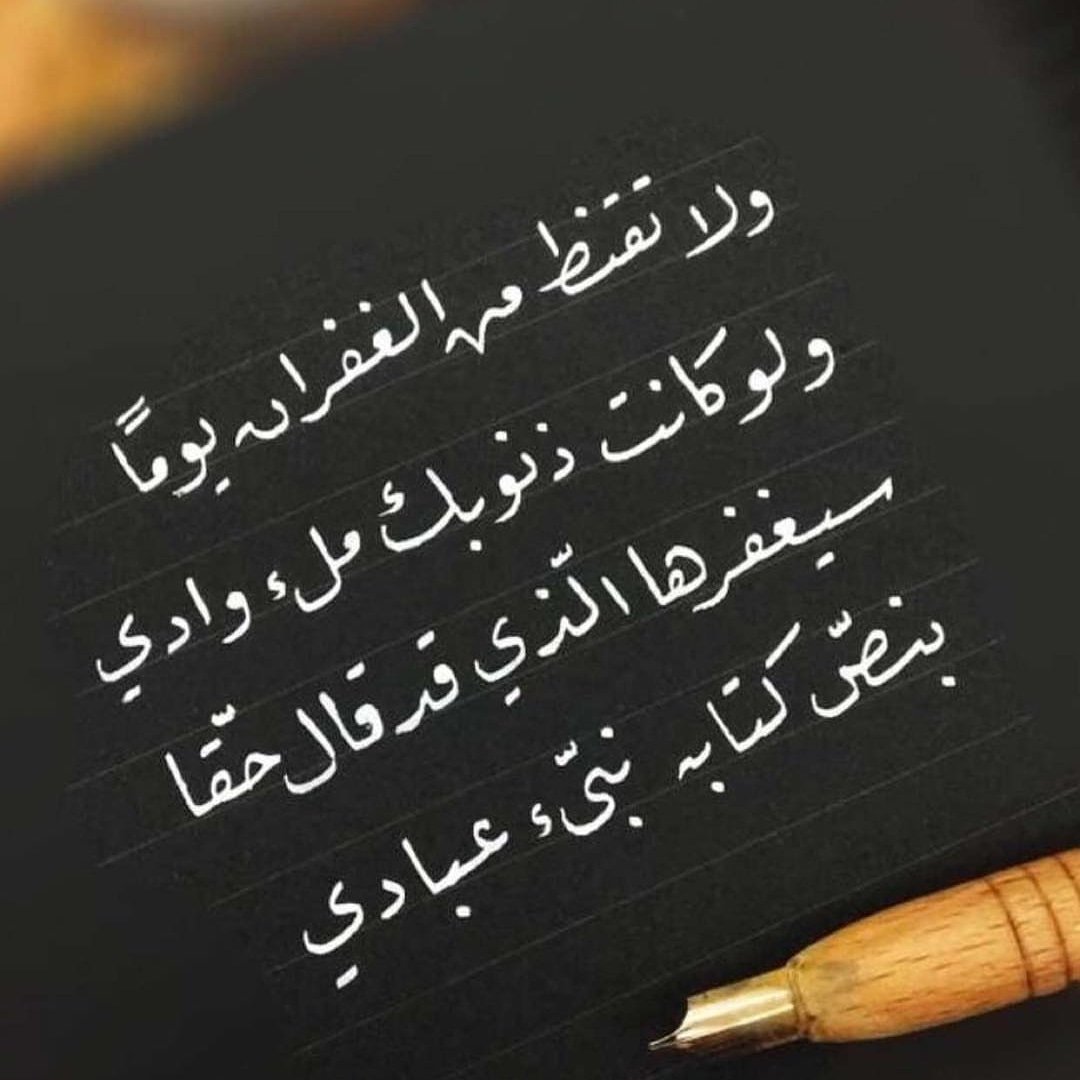 ولا تقتظ من الغفران يومًا
ولو كانت ذنوبك ملء وادي
سيغفرها الّذي قد قال حقّا
بنصّ كتابه نبّىء عبادي